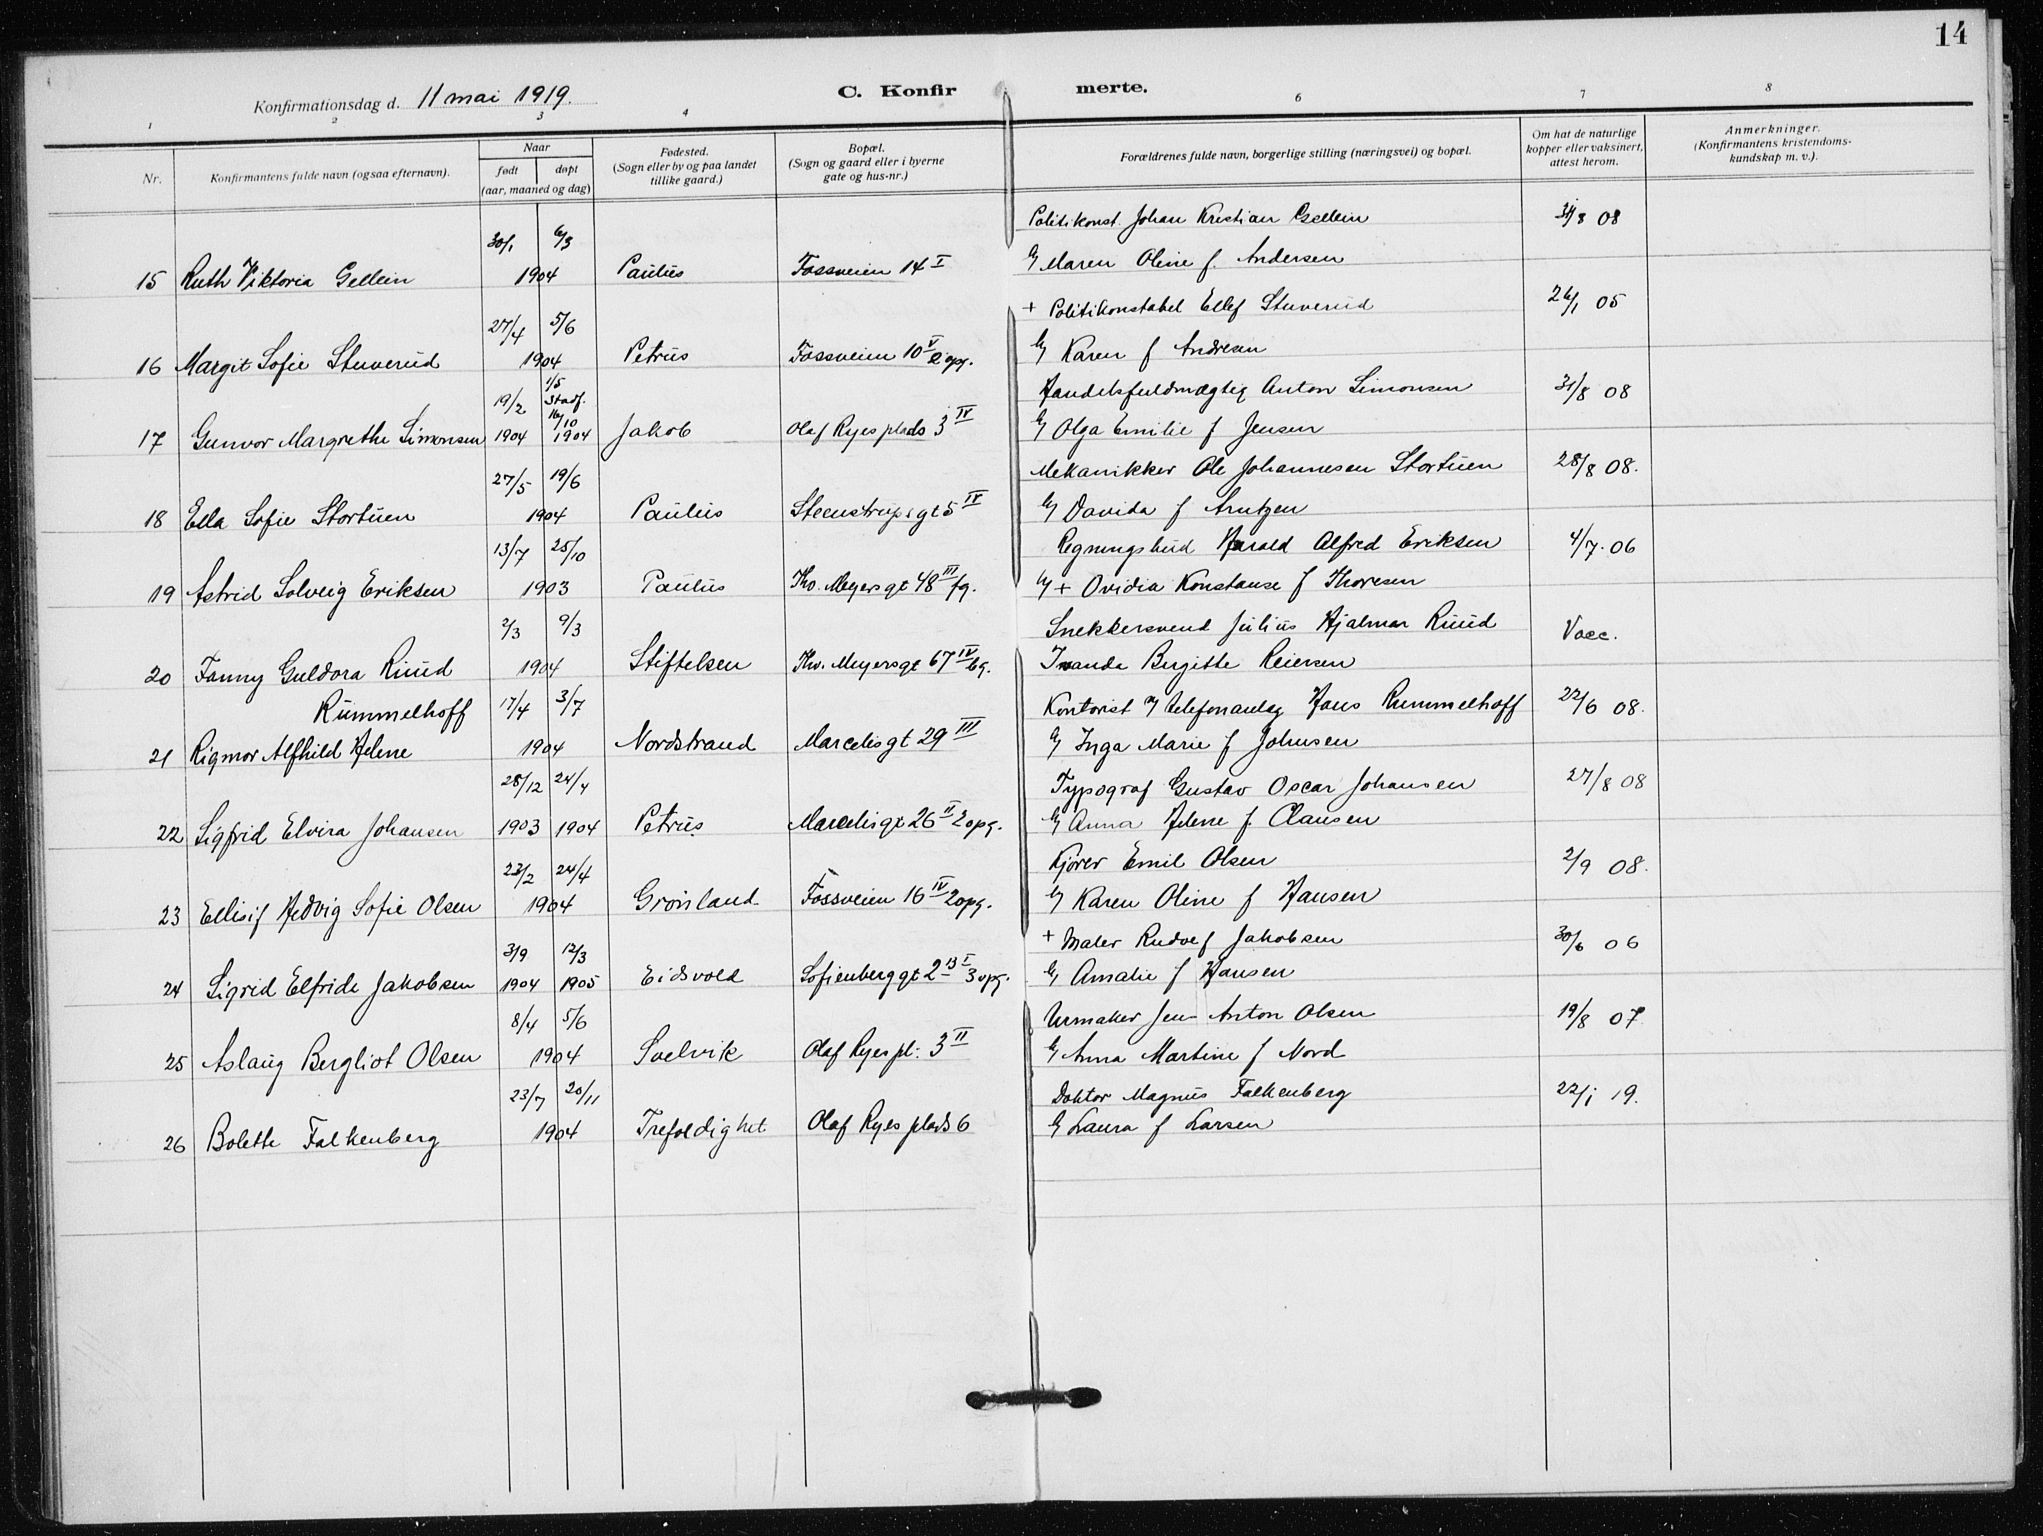 14
Konfirmationsdag d. 11 mai 1919.
C. Konfirmerte.
1 2 3 4 6 7 8
Nr.
Konfirmantens fulde navn (ogsaa efternavn).
Naar
født døpt
(aar, maaned og dag)
Fødested.
(Sogn eller by og paa landet
tillike gaard.)
Bopæl.
(Sogn og gaard eller i byerne
gate og hus-nr.)
Forældrenes fulde navn, borgerlige stilling (næringsvei) og bopæl.
Om hat de naturlige
kopper eller vaksinert,
attest herom.
Anmerkninger.
(Konfirmantens kristendoms-
kundskap m. v.).
30/1 6/3 Politikonst. Johan Kristian Gellein 31/8 08
15 Ruth Viktoria Gellein 1904 Paulus Fossveien 14 I Maren Oline f. Andersen
27/4 5/6 + Politikonstabel Ellef Stuverud 26/1 05
16 Margit Sofie Stuverud 1904 Petrus Fossveien 10 V 2 opg. Karen f Andresen
19/2 1/5 Stadf. 16/10 Handelsfuldmægtig Anton Simonsen 31/8 08
17 Gunvor Margrethe Simonsen 1904 1904 Jakob Olaf Ryes plads 3 IV Olga Emilie f Jensen
27/5 19/6 Mekanikker Ole Johannesen Stortuen 28/8 08.
18 Ella Sofie Stortuen 1904 Paulus Steenstrups gt 5 IV Davida f Arntzen
13/7 25/10 Regningsbud Harald Alfred Eriksen 4/7. 06
19 Astrid Solveig Eriksen 1903 Paulus Thv. Meyersgt 48 III fg. + Ovidia Konstanse f Thoresen
2/3 9/3 Snekkersvend Julius Hjalmar Ruud Vacc.
20 Fanny Guldora Ruud 1904 Stiftelsen Thv. Meyersgt 67 IV bg. Ivanda Birgitte Reiersen
Rummelhoff 17/4 3/7 Kontorist v/ telefonanlæg Hans Rummelhoff 22/6 08.
21 Rigmor Alfhild Helene 1904 Nordstrand Marcelisgt 29 III Inga Marie f Johnsen
28/12 24/4 Typograf Gustav Oscar Johansen 27/8 08
22 Sigfrid Elvira Johansen 1903 1904 Petrus Marcelisgt 26 II 2 opg. Anna Helene f. Clausen
23/2 24/4 Kjører Emil Olsen 2/9 08.
23 Ellisif Hedvig Sofie Olsen 1904 Grønland Fossveien 16 IV 2 opg. Karen Oline f Hansen
3/9 12/3 + Maler Rudolf Jakobsen 30/6 06
24 Sigrid Elfride Jakobsen 1904 1905 Eidsvold Sofienberggt 2 B I 3 opg. Amalie f Hansen
8/4 5/6 Urmaker Jens Anton Olsen 19/8 07
25 Aslaug Bergliot Olsen 1904 Svelvik Olaf Ryes pl. 3 II Anna Martine f Nord
23/7 20/11 Doktor Magnus Falkenberg 22/1 19.
26 Bolette Falkenberg 1904 Trefoldighet Olaf Ryes plads 6 Laura f Larsen